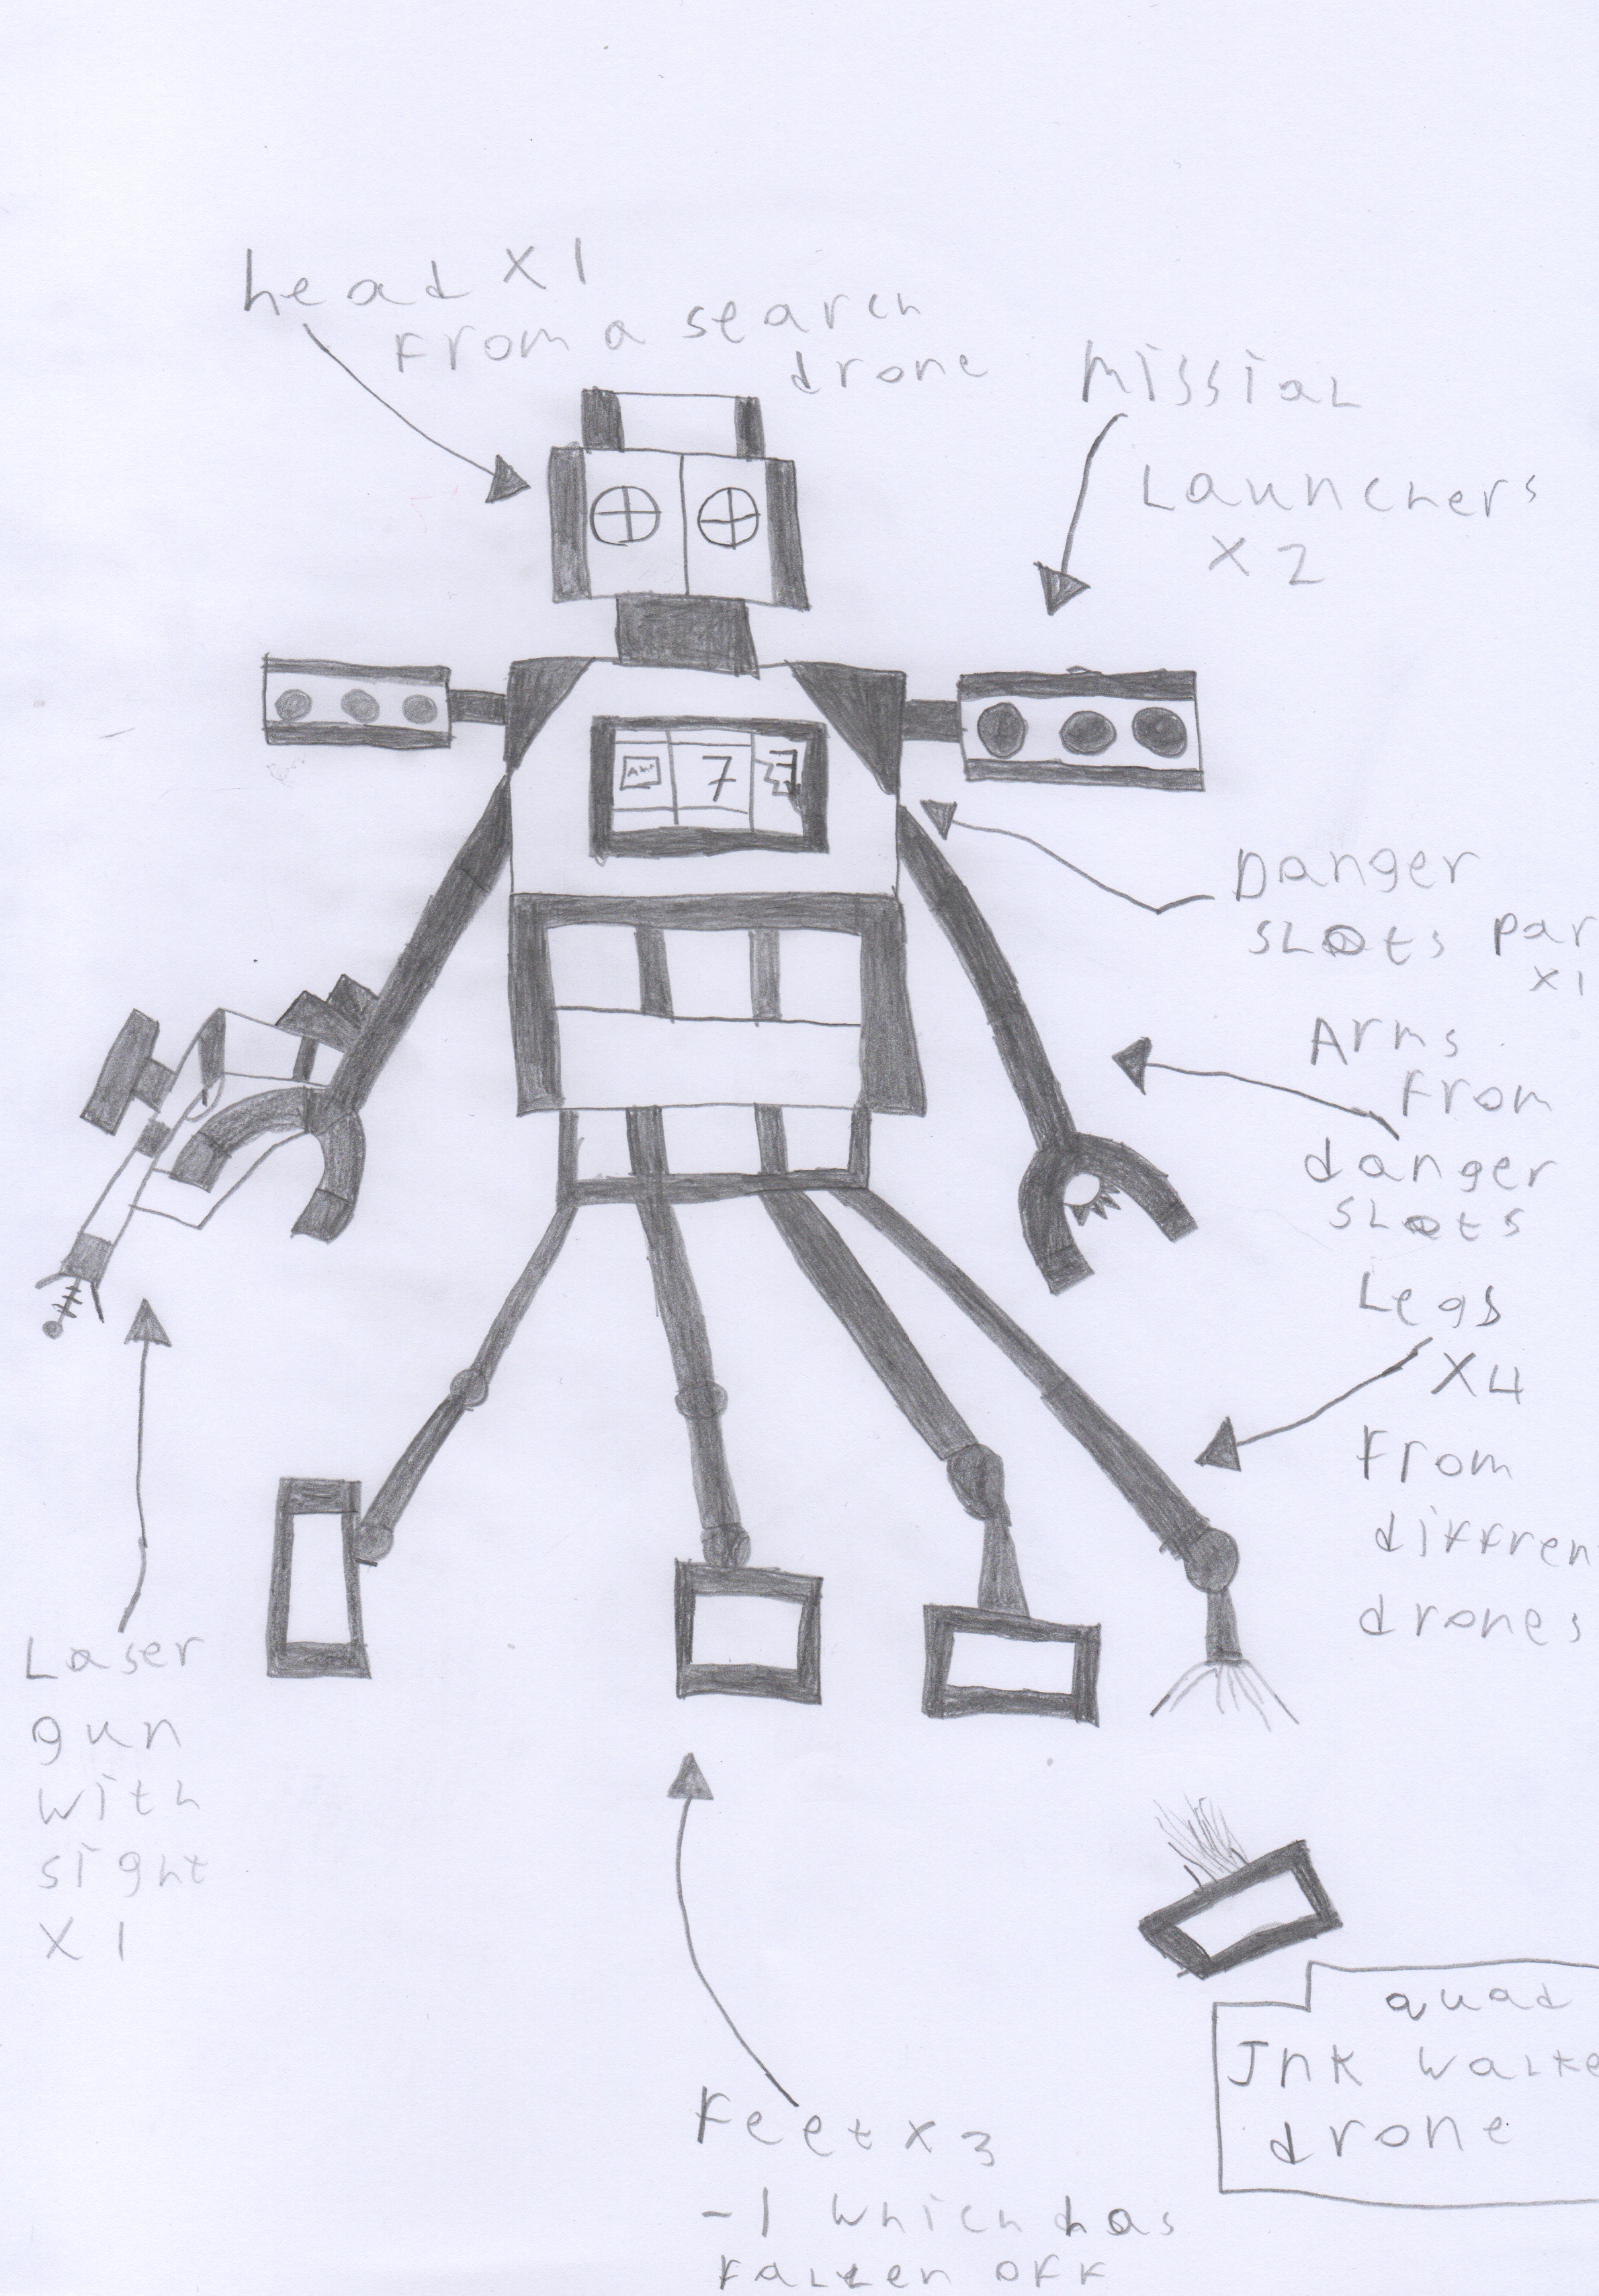 head x 1
from a search
drone
missial
Launchers
x 2
7
Danger
sLots par
x 1
Arms
from
danger
sLots
Legs
x4
from
diffren
drones
Laser
gun
with
sight
x 1
feet x 3
-1 which has
faLLen off
quad
Jnk waLke
drone